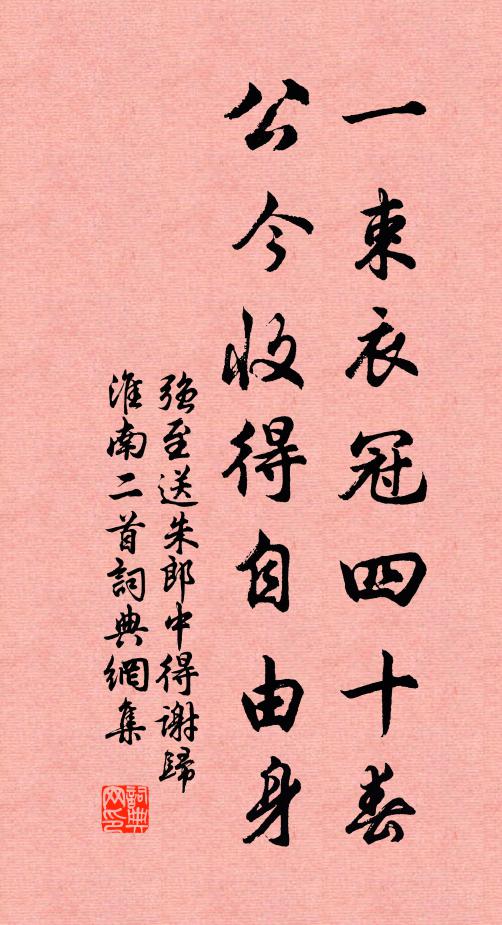 一束衣冠四十春
公今收得自由身
强至送朱郎中得謝歸
淮南二首詞典網集
詞典网印